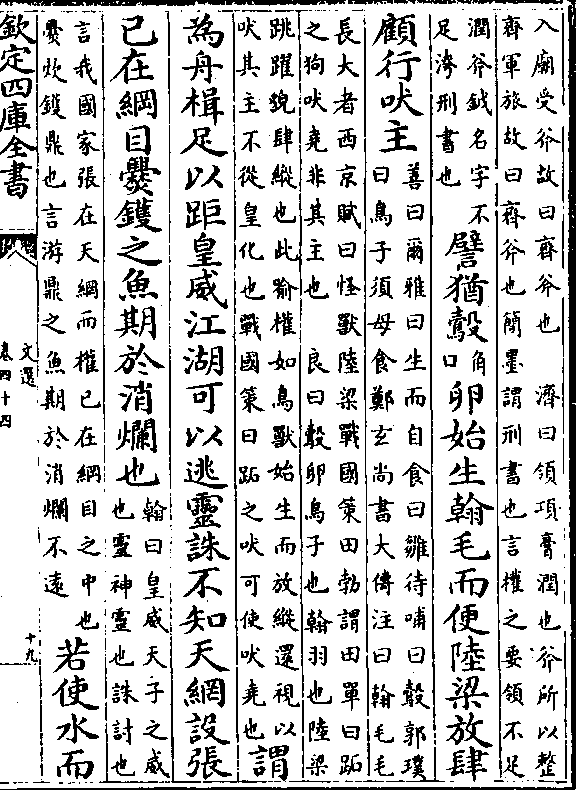 入廟受斧故曰齊斧也　濟曰領項膏潤也斧所以整
齊軍旅故曰齊斧也簡墨謂刑書也言權之要領不足
潤斧鉞名字不
足洿刑書也
譬猶鷇角口卵始生翰毛而便陸梁放肆
顧行吠主
善曰爾雅曰生而自食曰雛待哺曰鷇郭璞
曰鳥子須母食鄭玄尚書大傳注曰翰毛毛
長大者西京賦曰怪獸陸梁戰國策田勃謂田單曰跖
之狗吠堯非其主也　良曰鷇卵鳥子也翰羽也陸梁
跳躍貌肆縱也此喻權如鳥獸始生而放縱還視以
吠其主不從皇化也戰國策曰跖之吠可使吠堯也
謂
為舟楫足以距皇威江湖可以逃靈誅不知天網設張
已在綱目爨鑊之魚期於消爛也
翰曰皇威天子之威
也靈神靈也誅討也
言我國家張在天綱而權已在綱目之中也
爨炊鑊鼎也言游鼎之魚期於消爛不遠
若使水而
欽定四庫全書
文選
卷四十四
十九